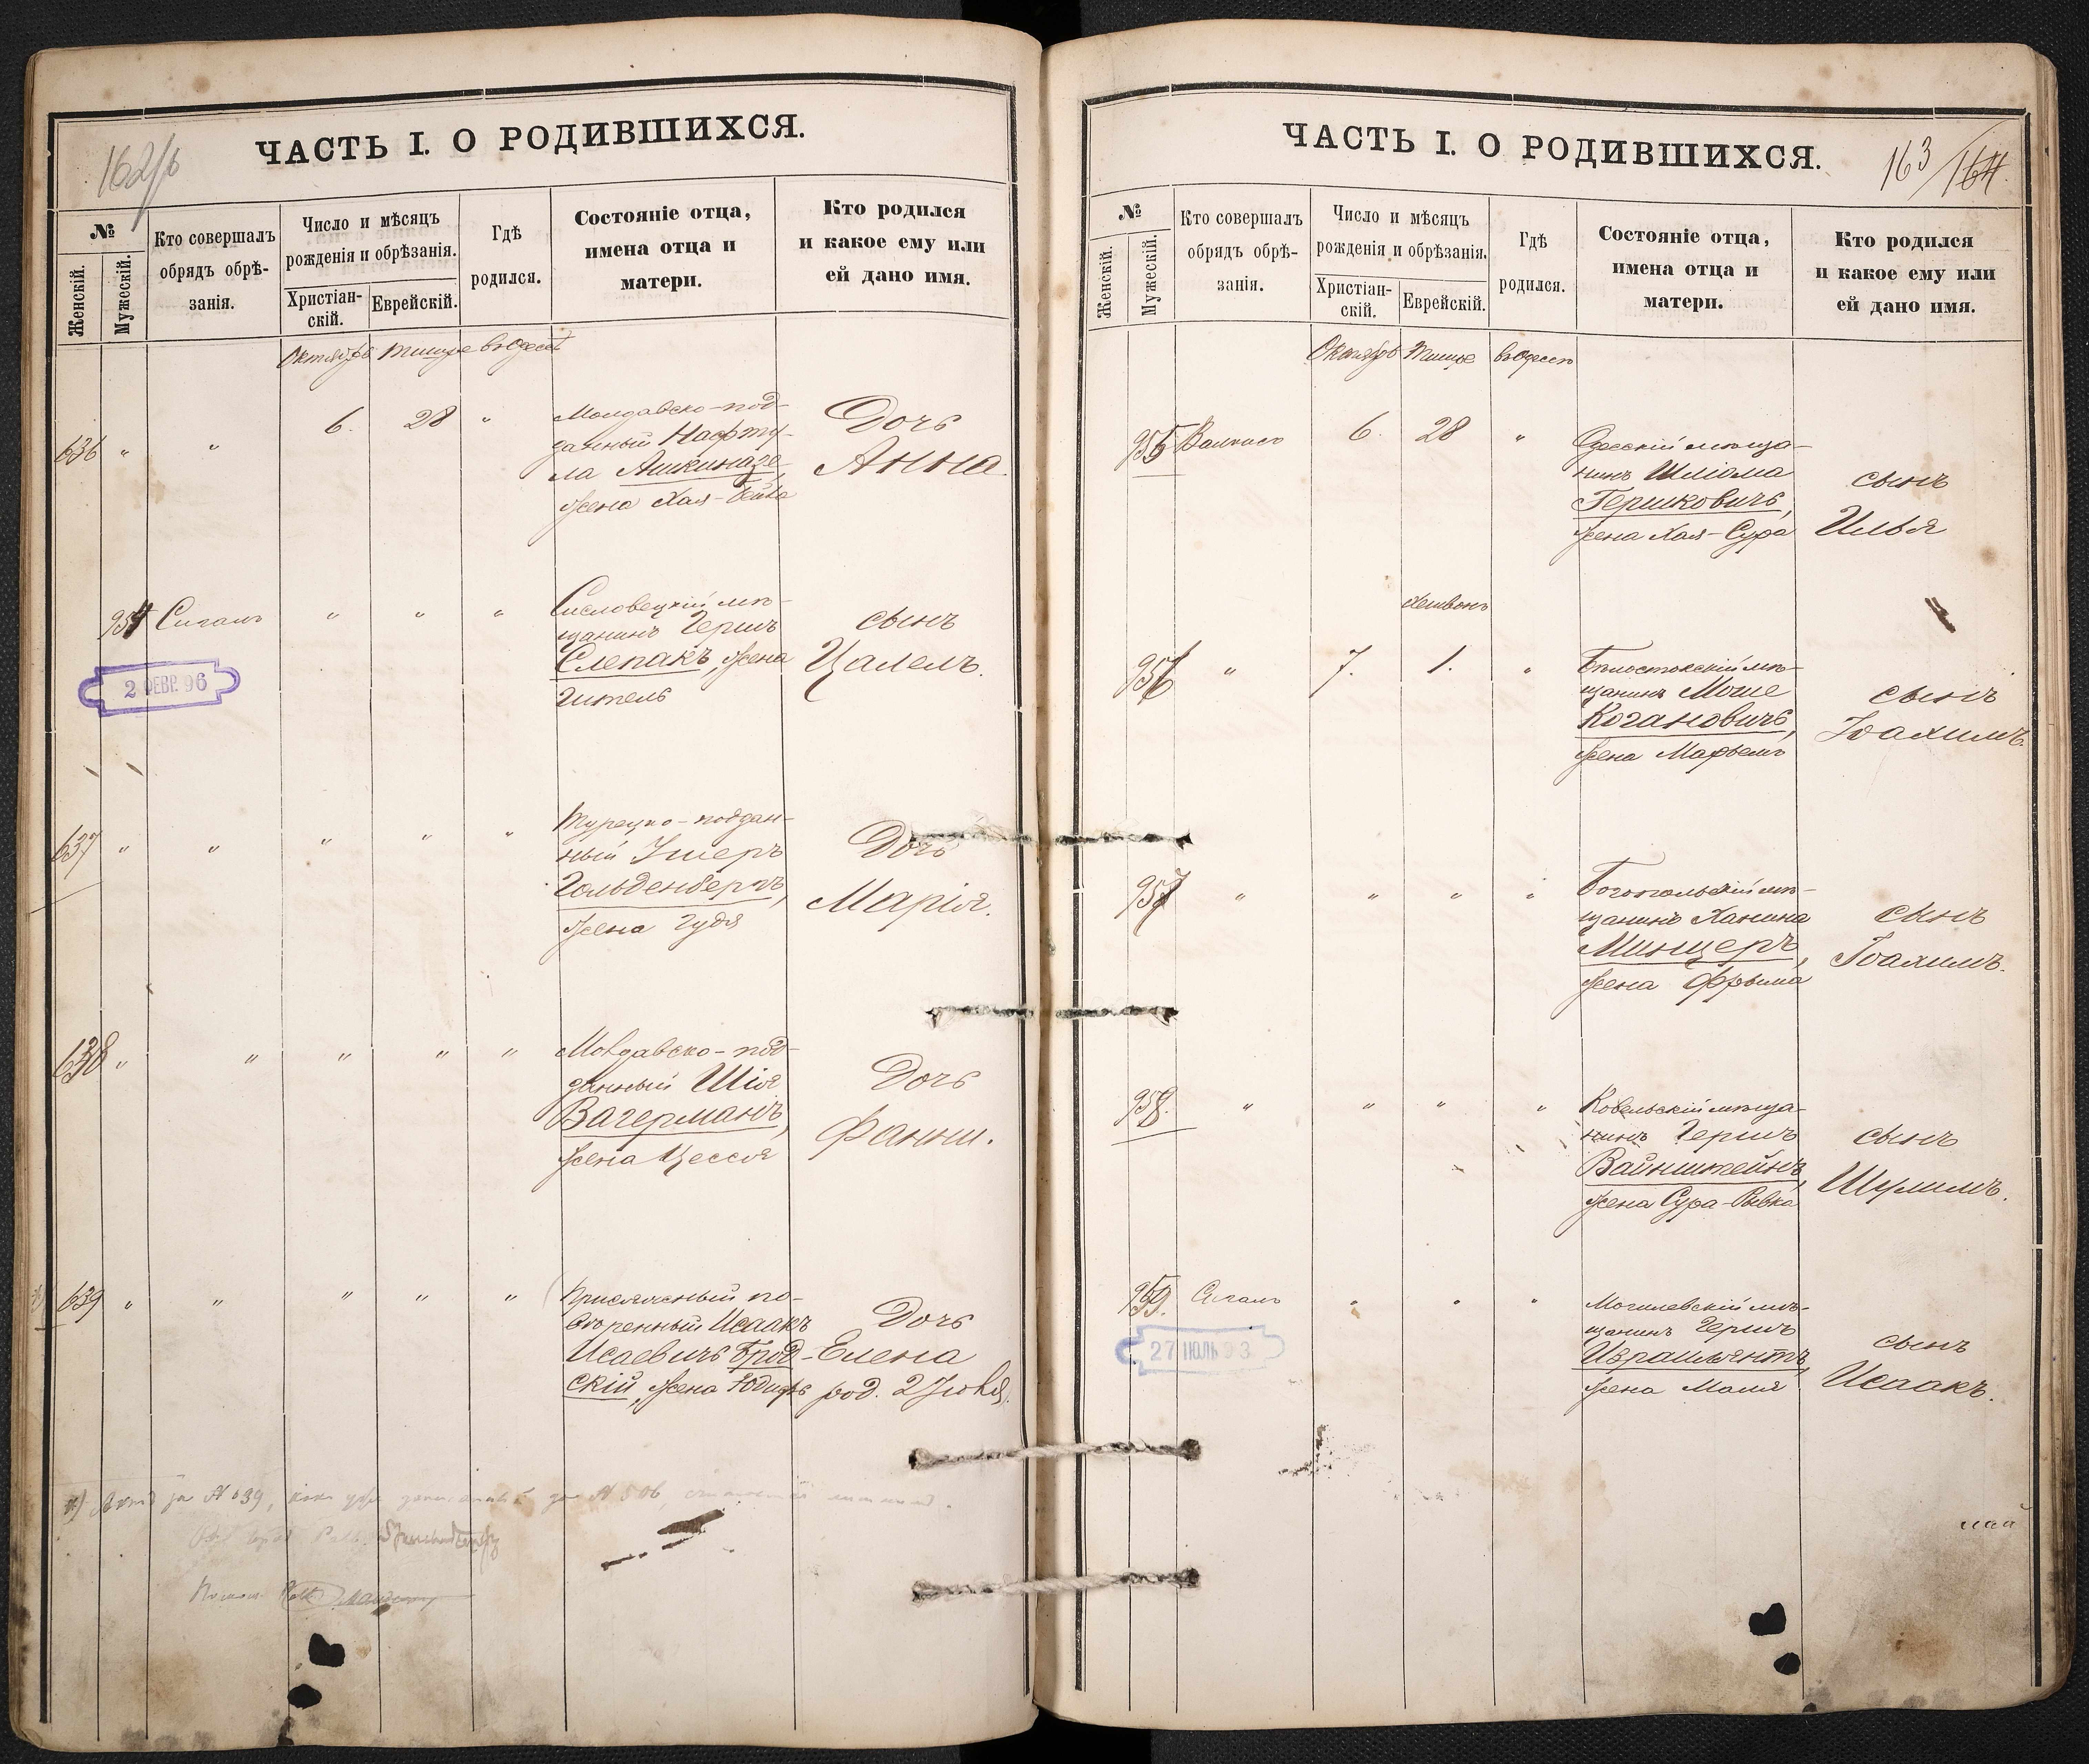 162/б
ЧАСТЬ I. О РОДИВШИХСЯ.
№
Женскій.
Мужескій.
Кто совершалъ
обрядъ обрѣ-
занія.
Число и мѣсяцъ
рожденія и обрѣзанія.
Христіан-
скій.
Еврейскій.
Гдѣ
родился.
Состояніе отца,
имена отца и
матери.
Кто родился
и какое ему или
ей дано имя.
Октябрь Тишре въ Одессѣ
636 " " 6. 28 "
Молдавско-под-
данный Нафту-
ла Ашкиназе,
жена Хая-Бейла
Дочь
Анна.
954 Сигалъ " " "
мѣ-
щанинъ Гершъ
Слепакъ, жена
Гитель
сынъ
Цалелъ.
2 ФЕВР. 96
637 " " " " "
Турецко-поддан-
ный Ушеръ
Гольденбергъ,
жена Гудя
Дочь
Марія.
638 " " " " "
Молдавско-под-
данный Шія
Вагерманъ,
жена Цессія
Дочь
Фанни.
639 " " " " "
Присяжный по-
вѣренный Исаакъ
Исаевичъ Брод-
скій, жена Юдифь
Дочь
Елена
род. 2 Іюля.
*) Актъ за № 639, какъ уже записанный за № 506, считается
163/164
ЧАСТЬ I. О РОДИВШИХСЯ.
№
Женскій.
Мужескій.
Кто совершалъ
обрядъ обрѣ-
занія.
Число и мѣсяцъ
рожденія и обрѣзанія.
Христіан-
скій.
Еврейскій.
Гдѣ
родился.
Состояніе отца,
имена отца и
матери.
Кто родился
и какое ему или
ей дано имя.
Октябрь Тишре въ Одессѣ
955 6. 28 "
Одесскій мѣща-
нинъ Шліома
Гершковичъ,
жена Хая-Сура
сынъ
Илья
Хешвонъ
956 " 7. 1. "
Бѣлостокскій мѣ-
щанинъ Моше
Когановичъ,
жена Марьемъ
сынъ
Іоахимъ.
957 " " " "
Богопольскій мѣ-
щанинъ Ханина
Минцеръ,
жена Фрыма
сынъ
Іоахимъ.
958. " " " "
Ковельскій мѣща-
нинъ Гершъ
Вайнштейнъ,
жена Сура-Ривка
сынъ
Шулимъ.
959. Сигалъ " " "
Могилевскій мѣ-
щанинъ Гершъ
Израильянтъ,
жена Маля
сынъ
Исаакъ.
27 ІЮЛЬ 93